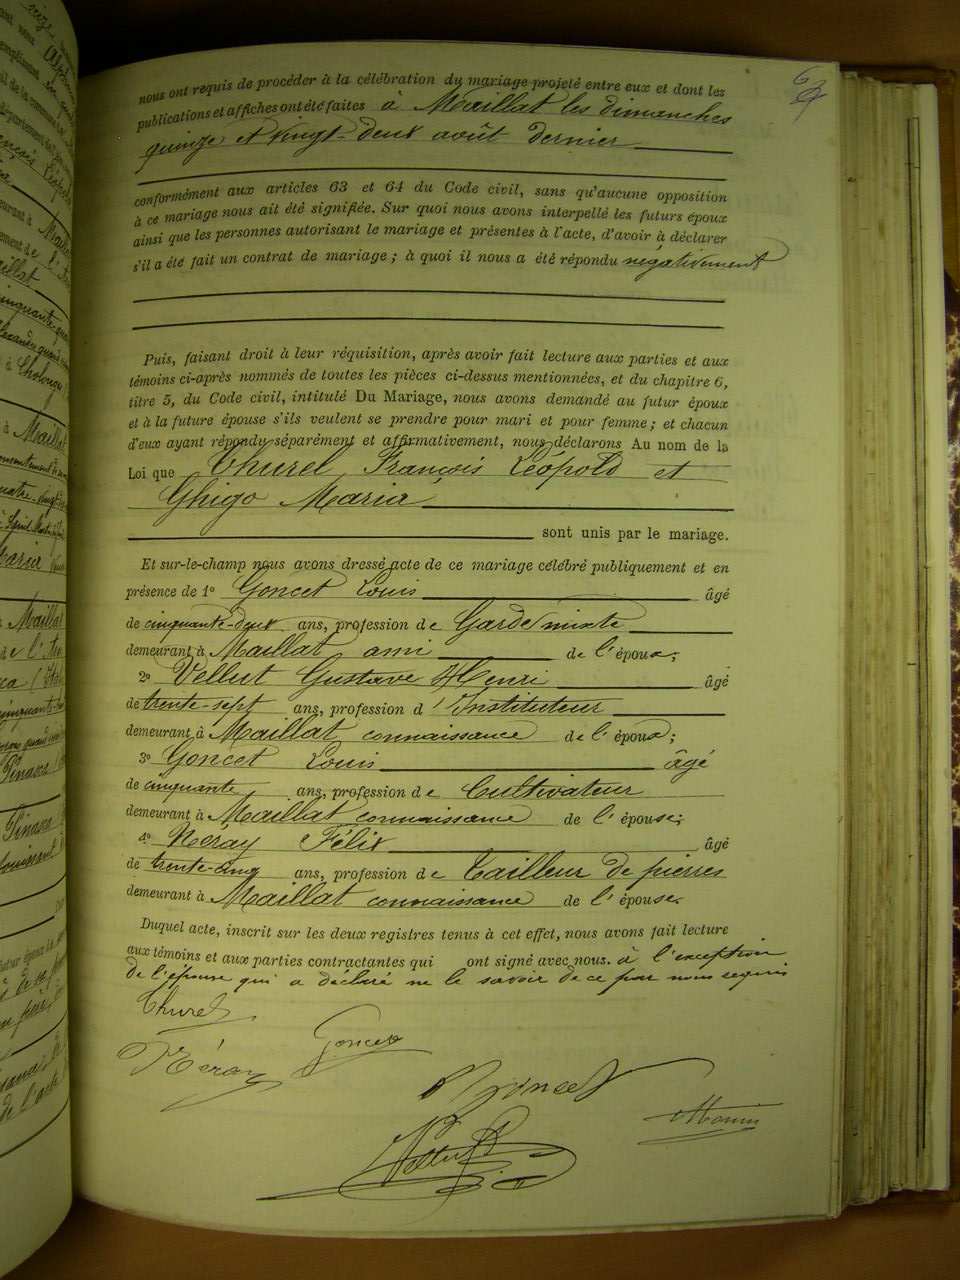 nous ont requis de procéder à la célébration du mariage projeté entre eux et dont les
publications et affiches ont été faites à Maillat les dimanches
quinze et vingt-deux août dernier
conformément aux articles 63 et 64 du Code civil, sans qu'aucune opposition
à ce mariage nous ait été signifiée. Sur quoi nous avons interpellé les futurs époux
ainsi que les personnes autorisant le mariage et présentes à l'acte, d'avoir à déclarer
s'il a été fait un contrat de mariage ; à quoi il nous a été répondu négativement
Puis, faisant droit à leur réquisition, après avoir fait lecture aux parties et aux
témoins ci-après nommés de toutes les pièces ci-dessus mentionnées, et du chapitre 6,
titre 5, du Code civil, intitulé Du Mariage, nous avons demandé au futur époux
et à la future épouse s'ils veulent se prendre pour mari et pour femme ; et chacun
d'eux ayant répondu séparément et affirmativement, nous déclarons Au nom de la
Loi que Thurel François Léopold et
Ghigo Maria
sont unis par le mariage.
Et sur-le-champ nous avons dressé acte de ce mariage célébré publiquement et en
présence de 1º Goncet Louis âgé
de cinquante-deux ans, profession de Garde mixte
demeurant à Maillat ami de l'époux;
2º Vellut Gustave Henri âgé
de trente-sept ans, profession d'Instituteur
demeurant à Maillat connaissance de l'époux;
3º Goncet Louis âgé
de cinquante ans, profession de Cultivateur
demeurant à Maillat connaissance de l'épouse;
4º Néray Félix âgé
de trente-cinq ans, profession de Tailleur de pierres
demeurant à Maillat connaissance de l'épouse.
Duquel acte, inscrit sur les deux registres tenus à cet effet, nous avons fait lecture
aux témoins et aux parties contractantes qui ont signé avec nous. à l'exception
de l'épouse qui a déclaré ne le savoir de ce par nous requis
Thurel
Néray Goncet
Goncet
Vellut